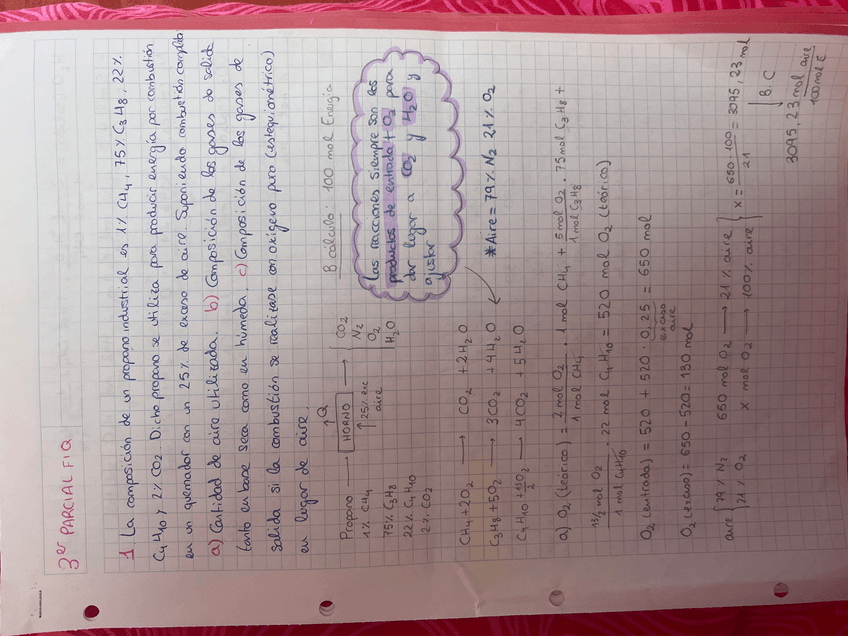 3er PARCIAL FIQ
1 La composición de un propano industrial es 1% CH4, 75% C3H8, 22%
C4H10 y 2% CO2. Dicho propano se utiliza para producir energía por combustión
en un quemador con un 25% de exceso de aire. Suponiendo combustión completa
a) Cantidad de aire utilizada. b) Composición de los gases de salida
tanto en base seca como en húmeda. c) Composición de los gases de
salida si la combustión se realizase con oxígeno puro (estequiométrico)
en lugar de aire.
B. cálculo: 100 mol Energía
Q
Propano → HORNO → CO2
1% CH4 ↑ 25% exc N2
75% C3H8 aire O2
22% C4H10 H2O
2% CO2
Las reacciones siempre son los
productos de entrada + O2 para
dar lugar a CO2 y H2O y
ajustar
CH4 + 2O2 → CO2 + 2H2O
C3H8 + 5O2 → 3CO2 + 4H2O
C4H10 + 13O2/2 → 4CO2 + 5H2O
*Aire = 79% N2 21% O2
a) O2 (teórico) = 2 mol O2 / 1 mol CH4 · 1 mol CH4 + 5 mol O2 / 1 mol C3H8 · 75 mol C3H8 +
13/2 mol O2 / 1 mol C4H10 · 22 mol C4H10 = 520 mol O2 (teórico)
O2 (entrada) = 520 + 520 · 0,25 = 650 mol
exceso
aire
O2 (exceso) = 650 - 520 = 130 mol
aire { 79% N2 650 mol O2 → 21% aire } x = 650·100 / 21 = 3095,23 mol
21% O2 x mol O2 → 100% aire
B.C
3095,23 mol aire / 100 mol E